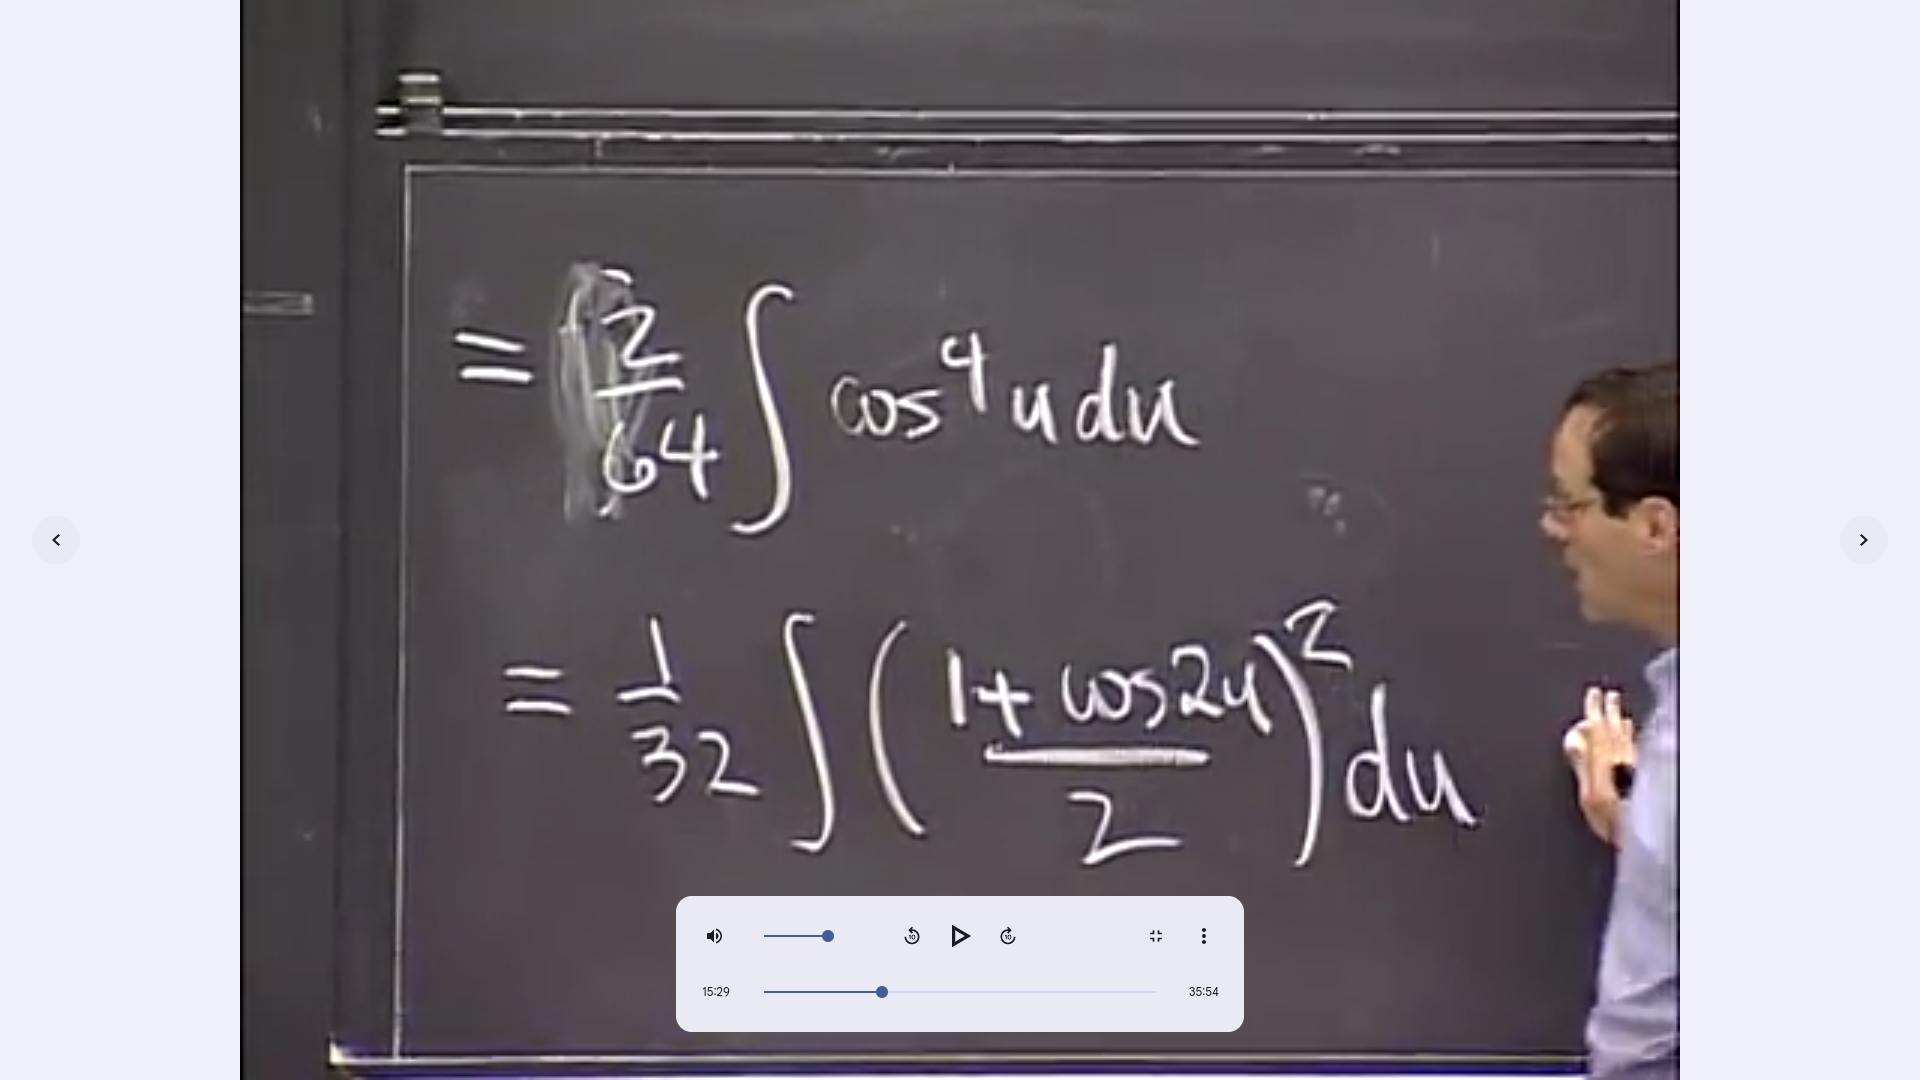 = 2/64 ∫ cos⁴ u du
= 1/32 ∫ ( (1 + cos 2u) / 2 )² du
10
10
15:29
35:54